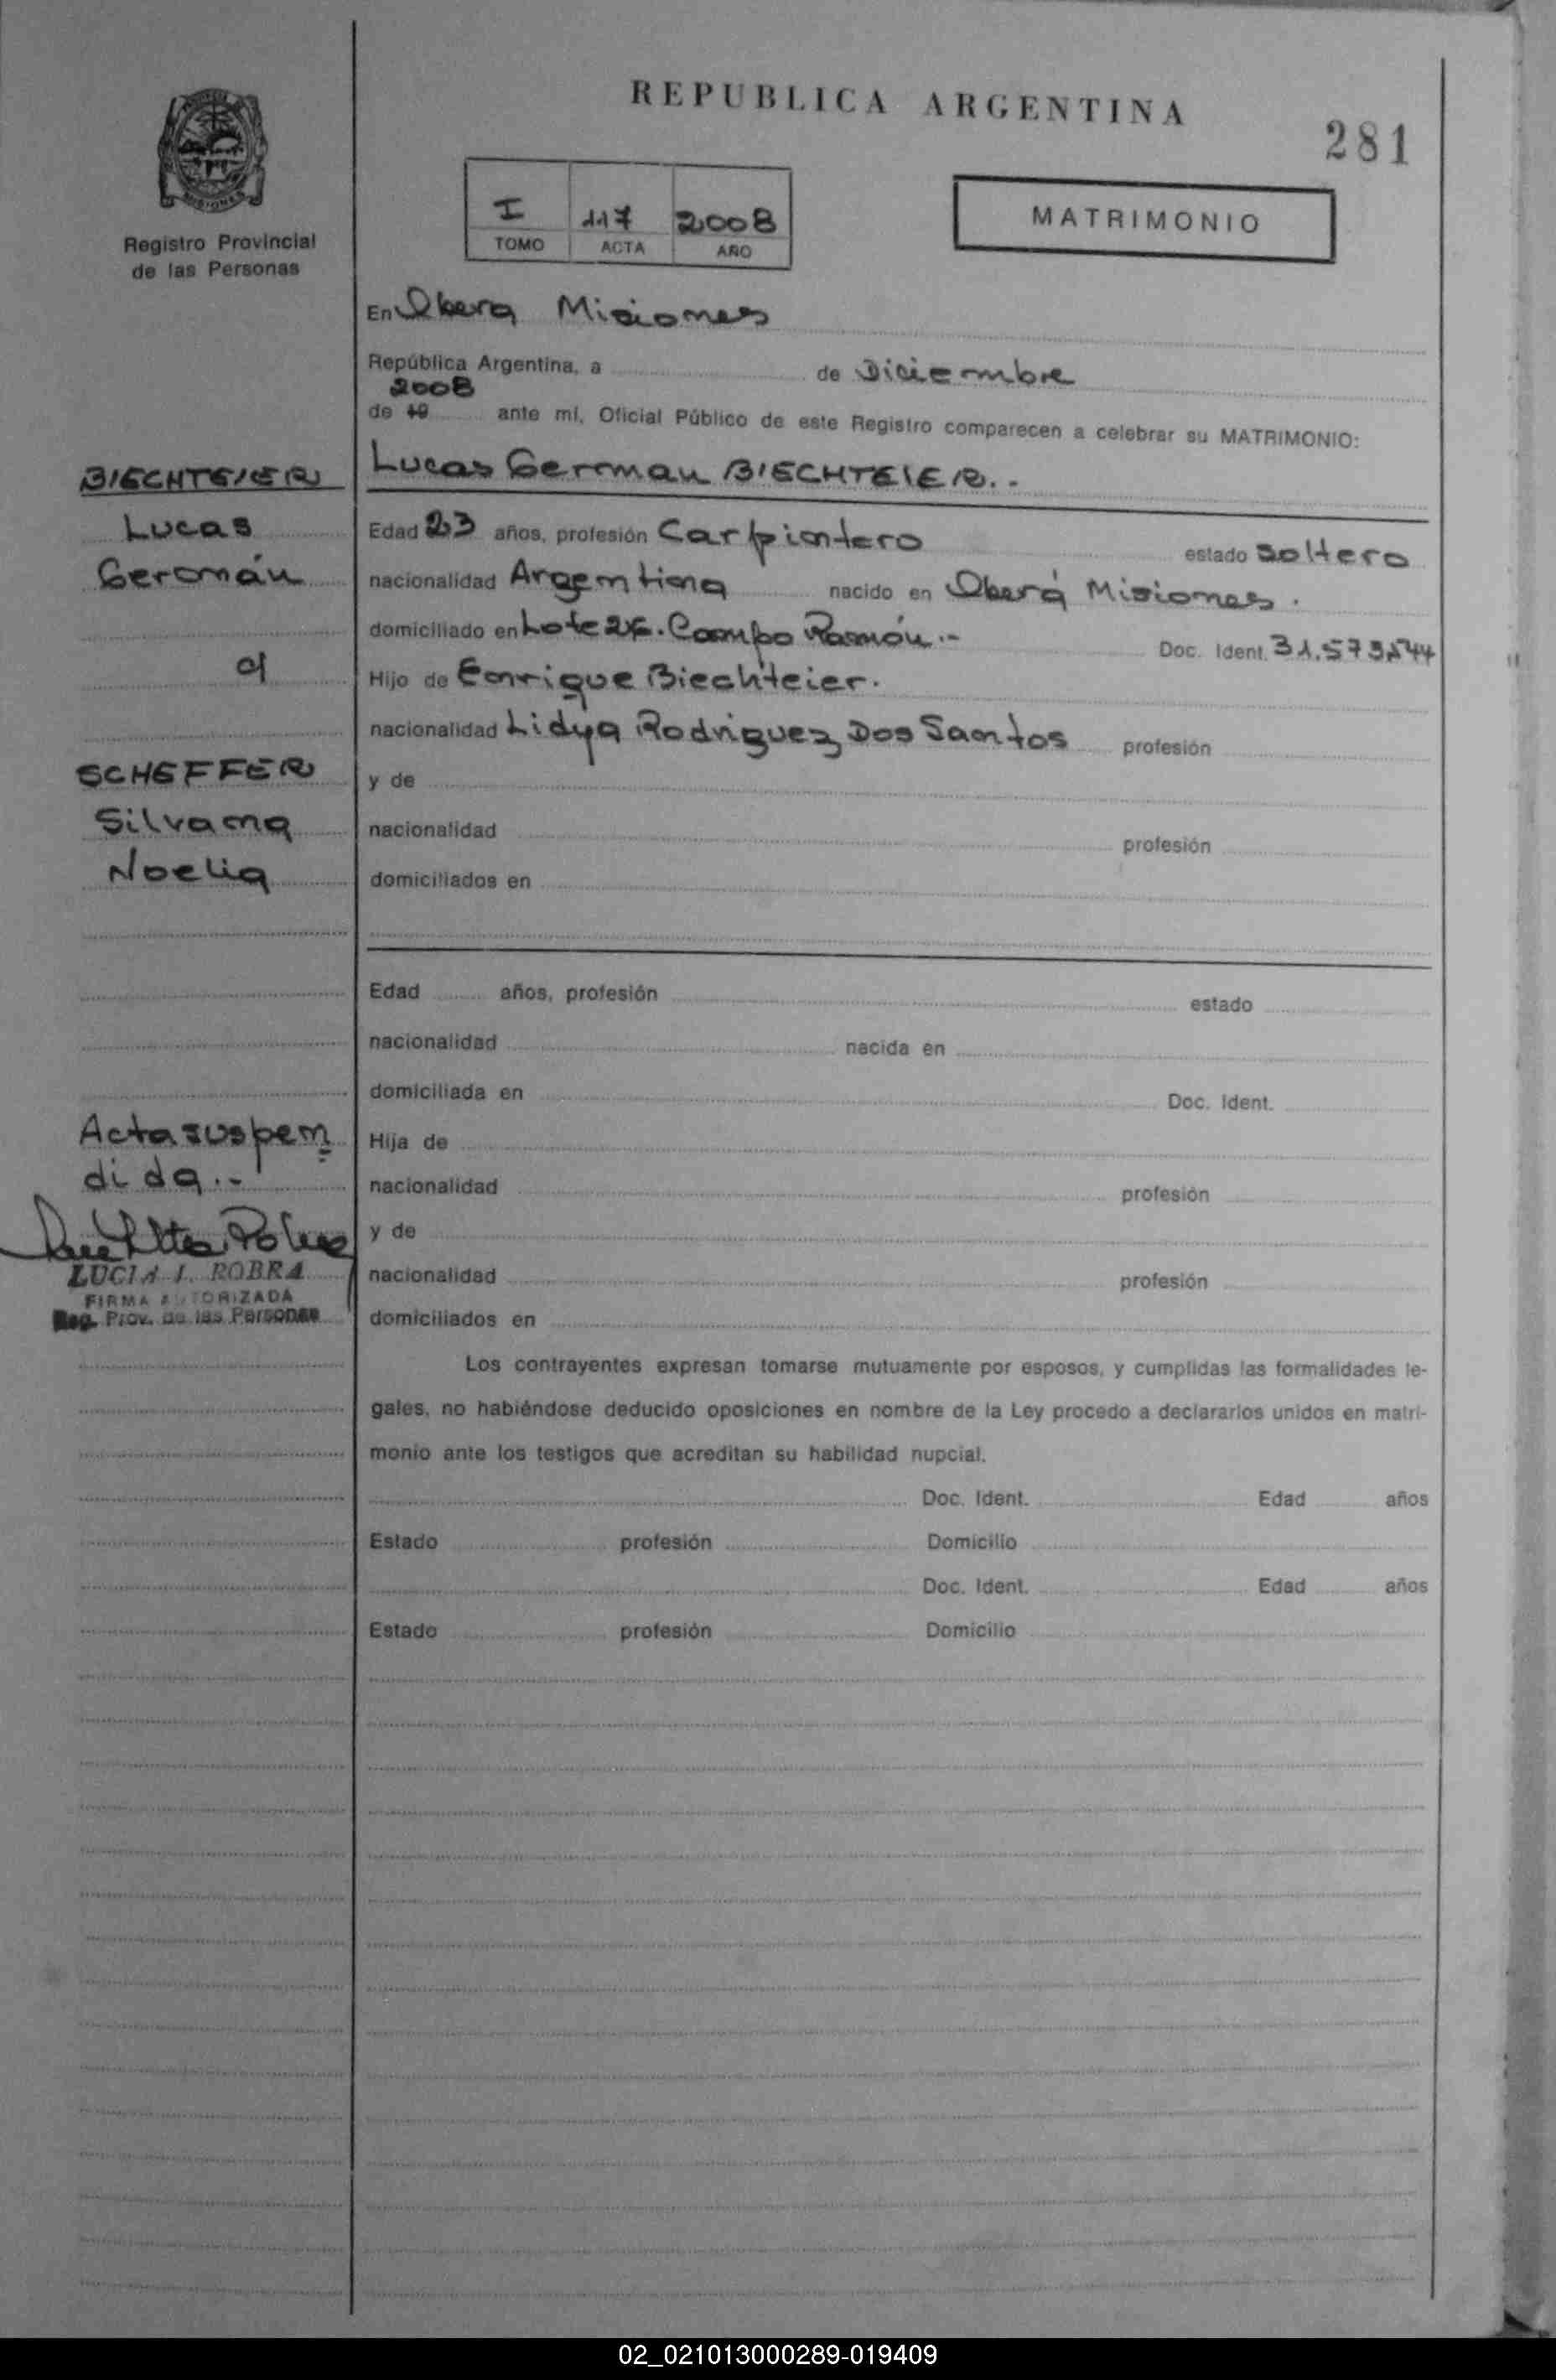 REPUBLICA ARGENTINA
281
I 117 2008
TOMO ACTA AÑO
MATRIMONIO
MISIONES
Registro Provincial
de las Personas
En Oberá Misiones
República Argentina, a de Diciembre
2008
de 19 ante mí, Oficial Público de este Registro comparecen a celebrar su MATRIMONIO:
BIECHTEIER
Lucas
Germán
c/
SCHEFFER
Silvana
Noelia
Lucas German BIECHTEIER..
Edad 23 años, profesión Carpintero estado Soltero
nacionalidad Argentina nacido en Oberá Misiones.
domiciliado en Lote 26. Campo Ramón.- Doc. Ident. 31.573.544
Hijo de Enrique Biechteier.
nacionalidad Lidya Rodriguez Dos Santos profesión
y de
nacionalidad profesión
domiciliados en
Edad años, profesión estado
nacionalidad nacida en
domiciliada en Doc. Ident.
Hija de
nacionalidad profesión
y de
nacionalidad profesión
domiciliados en
Acta suspen
dida.-
LUCIA I. ROBRA
FIRMA AUTORIZADA
Reg. Prov. de las Personas
Los contrayentes expresan tomarse mutuamente por esposos, y cumplidas las formalidades le-
gales, no habiéndose deducido oposiciones en nombre de la Ley procedo a declararlos unidos en matri-
monio ante los testigos que acreditan su habilidad nupcial.
Doc. Ident. Edad años
Estado profesión Domicilio
Doc. Ident. Edad años
Estado profesión Domicilio
02_021013000289-019409